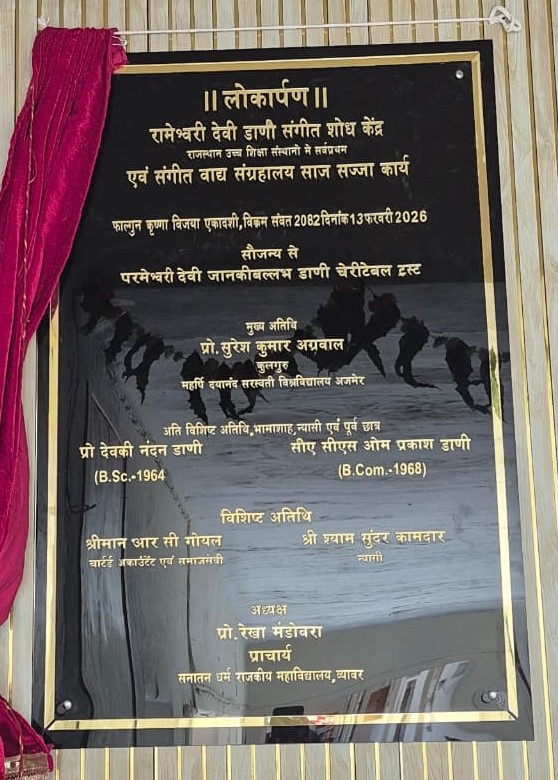 ॥लोकार्पण॥
रामेश्वरी देवी डाणी संगीत शोध केंद्र
राजस्थान उच्च शिक्षा संस्थानो मे सर्वप्रथम
एवं संगीत वाद्य संग्रहालय साज सज्जा कार्य
फाल्गुन कृष्णा विजया एकादशी,विक्रम संवत 2082दिनांक13फरवरी2026
सौजन्य से
परमेश्वरी देवी जानकीबल्लभ डाणी चेरीटेबल ट्रस्ट
मुख्य अतिथि
प्रो.सुरेश कुमार अग्रवाल
कुलगुरु
महर्षि दयानंद सरस्वती विश्वविद्यालय अजमेर
अति विशिष्ट अतिथि,भामाशाह,न्यासी एवं पूर्व छात्र
प्रो देवकी नंदन डाणी सीए सीएस ओम प्रकाश डाणी
(B.Sc.-1964 (B.Com.-1968)
विशिष्ट अतिथि
श्रीमान आर सी गोयल श्री श्याम सुंदर कामदार
चार्टर्ड अकाउंटेंट एवं समाजसेवी न्यासी
अध्यक्ष
प्रो.रेखा मंडोवरा
प्राचार्य
सनातन धर्म राजकीय महाविद्यालय,ब्यावर